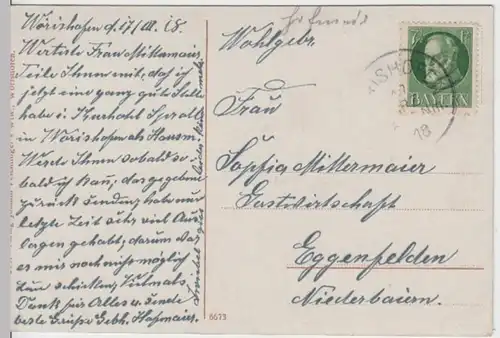 Wörishofen d. 17/III. 18.
Werteste Frau Mittermaier
Teile Ihnen mit, daß ich
jetzt eine ganz gute Stelle
habe i. Kurhotl
in Wörishofen als Hausm.
Werde Ihnen sobald so-
bald ich kan, das
zurück senden, habe nur
letzte Zeit sehr viel Aus-
lagen gehabt, darum war
es mir noch nicht möglich
zum schicken, Vielmals
Dank für Alles u. sende
beste Grüße Gebh. Hofmaier
Wohlgeb.
Frau
Sophia Mittermaier
Gastwirtschaft
Eggenfelden
Niederbaiern.
7½
BAYERN
18
6673